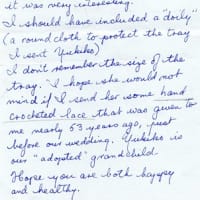 it was very interesting.
I should have included a "doily"
(a round cloth to protect the tray
I sent Yukiko)
I don't remember the size of the
tray. I hope she would not
mind if I send her some hand
crocheted lace that was given to
me nearly 53 years ago, just
before our wedding. Yukiko is
our "adopted" grandchild.
Hope you are both happy
and healthy.